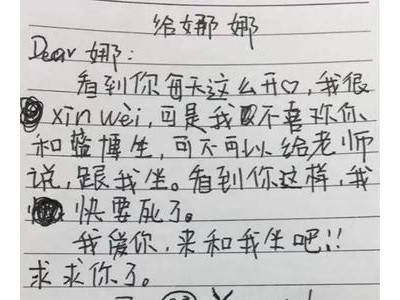 给娜娜
Dear 娜:
看到你每天这么开♡,我很
xin wei,可是我不喜欢你
和薛博生,可不可以给老师
说,跟我坐。看到你这样,我
快要死了。
我爱你,来和我坐吧!!
求求你了。